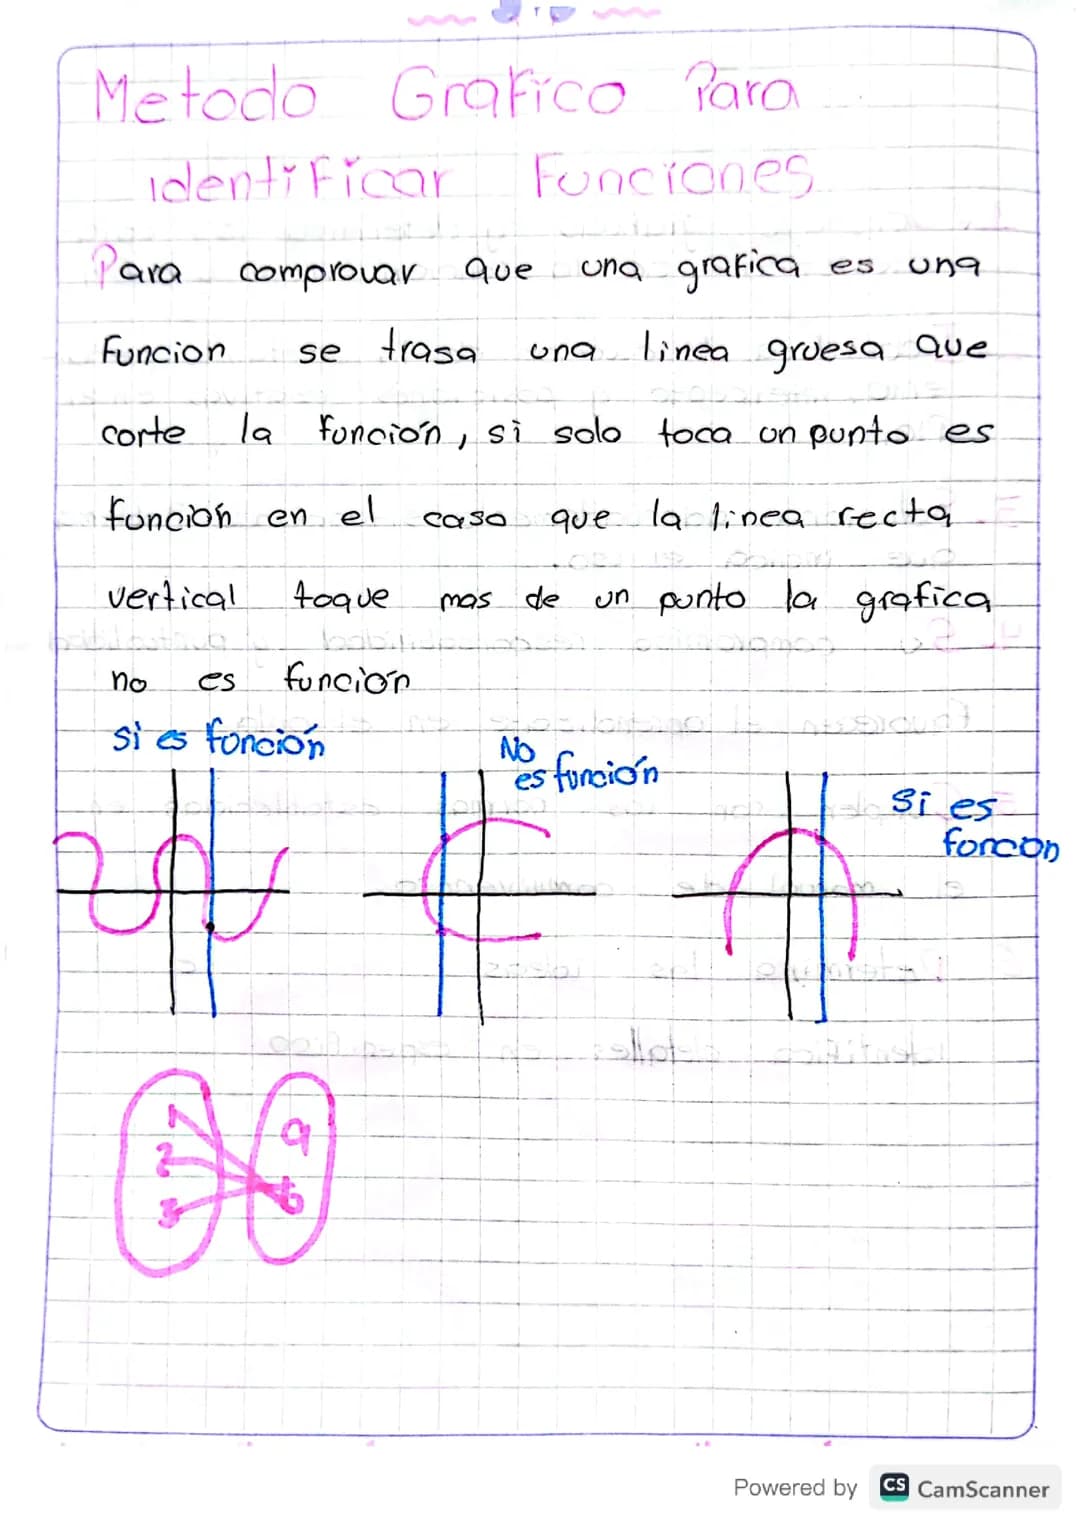 Metodo Grafico Para
identificar Funciones
Para comprovar que una grafica es una
Funcion se trasa una linea gruesa que
corte la función, si solo toca un punto es
función en el caso que la linea recta
vertical toque mas de un punto la grafica
no es función
Si es función
No
es función
Si es
foncon
1
2
3
a
b
Powered by CS CamScanner